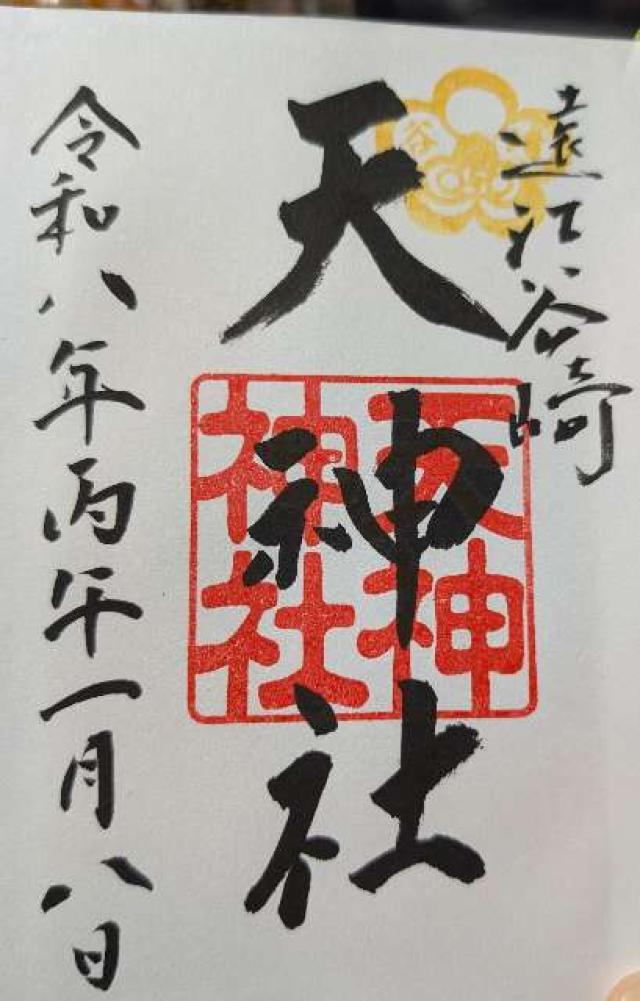 遠江谷崎
天神社
天神
神社
令和八年丙午一月八日